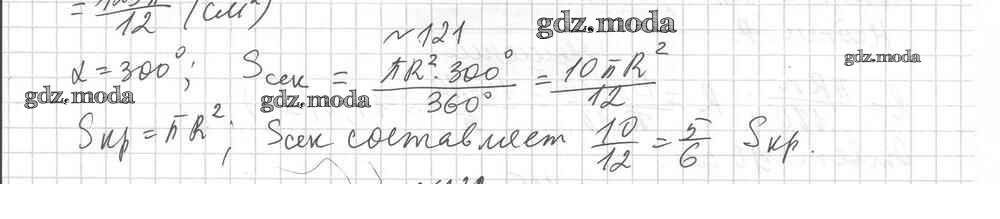 = 125π/12 (см²)
№121
gdz.moda
α = 300°; Sсек = πR²·300°/360° = 10πR²/12
gdz.moda
gdz.moda
gdz.moda
Sкр = πR²; Sсек составляет 10/12 = 5/6 Sкр.